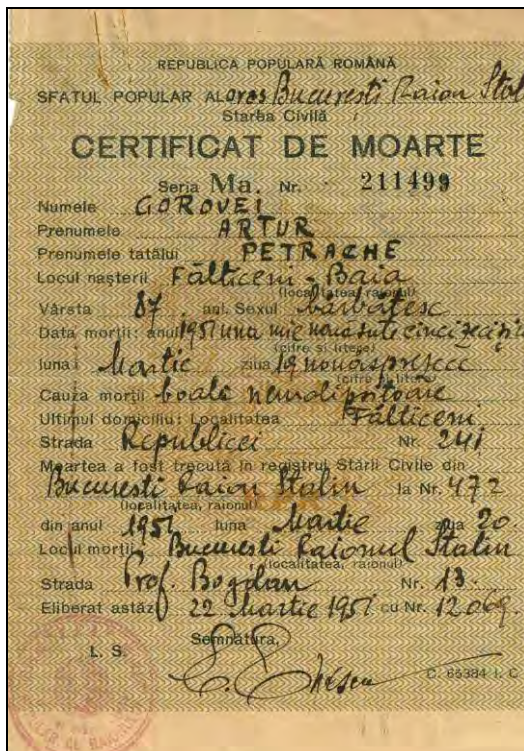 REPUBLICA POPULARĂ ROMÂNĂ
SFATUL POPULAR AL oraș București Raion Stal
Starea Civilă
CERTIFICAT DE MOARTE
Seria Ma. Nr. 211499
Numele GOROVEI
Prenumele ARTUR
Prenumele tatălui PETRACHE
Locul nașterii Fălticeni - Baia
(localitatea, raionul)
Vârsta 87 ani. Sexul bărbătesc
Data morții: anul 1951 una mie nouă sute cincizeci și
(cifre și litere)
luna Martie ziua 19 nouăsprezece
(cifre și litere)
Cauza morții boale
Ultimul domiciliu: Localitatea Fălticeni
Strada Republicei Nr. 241
Moartea a fost trecută în registrul Stării Civile din
București Raion Stalin la Nr. 472
(localitatea, raionul)
din anul 1951 luna Martie ziua 20.
Locul morții București Raionul Stalin
(localitatea, raionul)
Strada Prof. Bogdan Nr. 13.
Eliberat astăzi 22 Martie 1951 cu Nr. 12069.
Semnătura,
L. S.
C. 65384 I. C